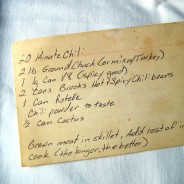 20 Minute Chili
2 lb Ground Chuck (or mix w/Turkey)
1 ½ Can V8 (spicy, good)
2 Cans Brooks Hot & Spicy Chili beans
1 Can Rotelle
Chili powder to taste
½ Can Cactus
Brown meat in skillet, Add rest of
cook (the longer, the better)